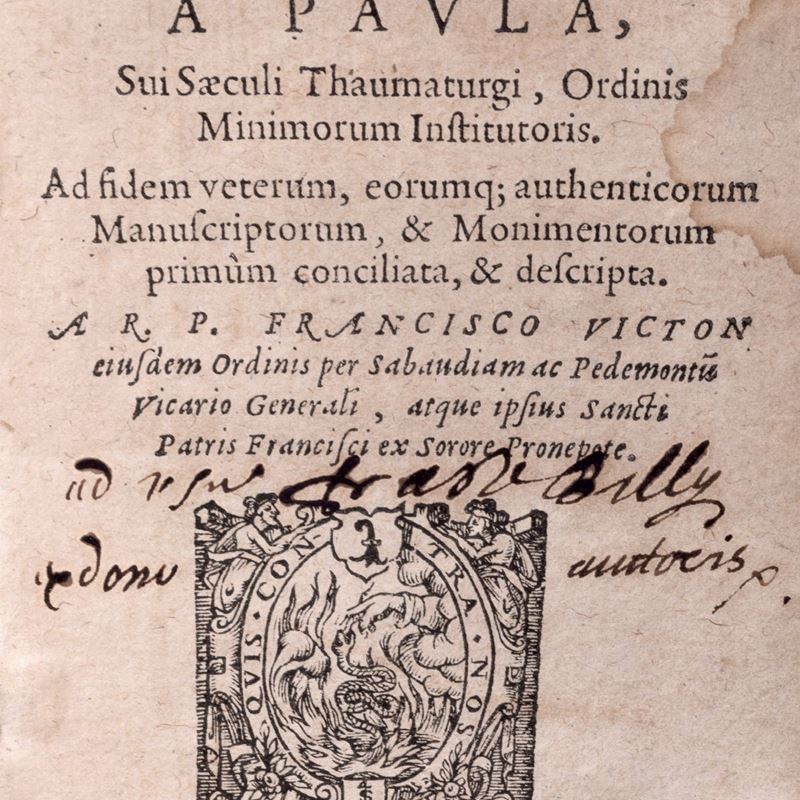 A PAVLA,
Sui Sæculi Thaumaturgi, Ordinis
Minimorum Inſtitutoris.
Ad fidem veterum, eorumq; authenticorum
Manuſcriptorum, & Monimentorum
primùm conciliata, & deſcripta.
A R. P. FRANCISCO VICTON
eiuſdem Ordinis per Sabaudiam ac Pedemontũ
Vicario Generali, atque ipſius Sancti
Patris Franciſci ex Sorore Pronepote.
ad uſu Billy
ex dono autoris
QVIS·CONTRA·NOS